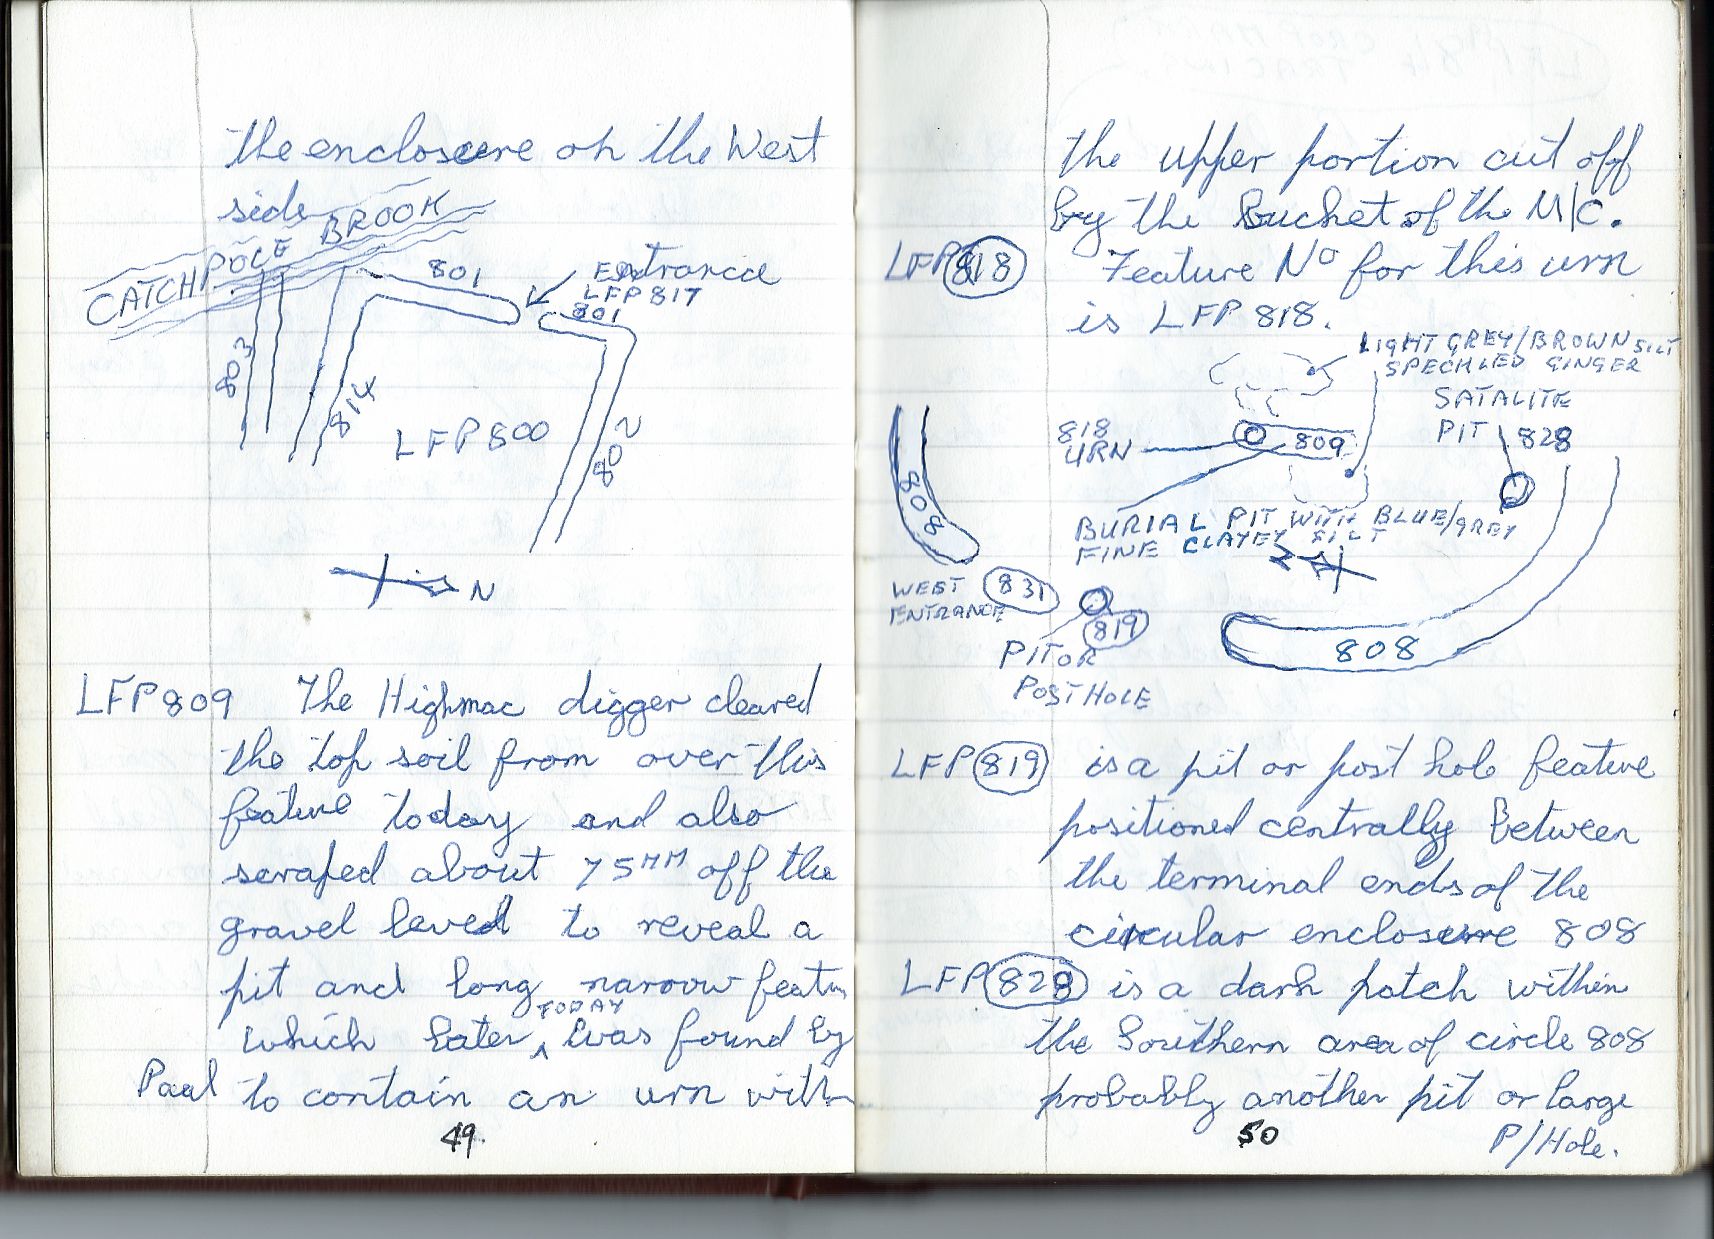 the enclosure on the West
side
CATCHPOLE BROOK
801
Entrance
LFP 817
801
803
814
LFP 800
802
N
LFP 809 The Highmac digger cleared
the top soil from over this
feature today and also
scraped about 75MM off the
gravel level to reveal a
pit and long narrow featur
TODAY
which later ^ was found by
Paul to contain an urn with
49.
the upper portion cut off
by the bucket of the M/C.
LFP 818 Feature No for this urn
is LFP 818.
LIGHT GREY/BROWN SILT
SPECKLED GINGER
SATALITE
PIT 828
818
URN
809
808
BURIAL PIT WITH BLUE/GREY
FINE CLAYEY SILT
N
WEST
ENTRANCE
831
819
PIT OR
POST HOLE
808
LFP 819 is a pit or post hole feature
positioned centrally between
the terminal ends of the
circular enclosure 808
LFP 828 is a dark patch within
the Southern area of circle 808
probably another pit or large
P/Hole.
50